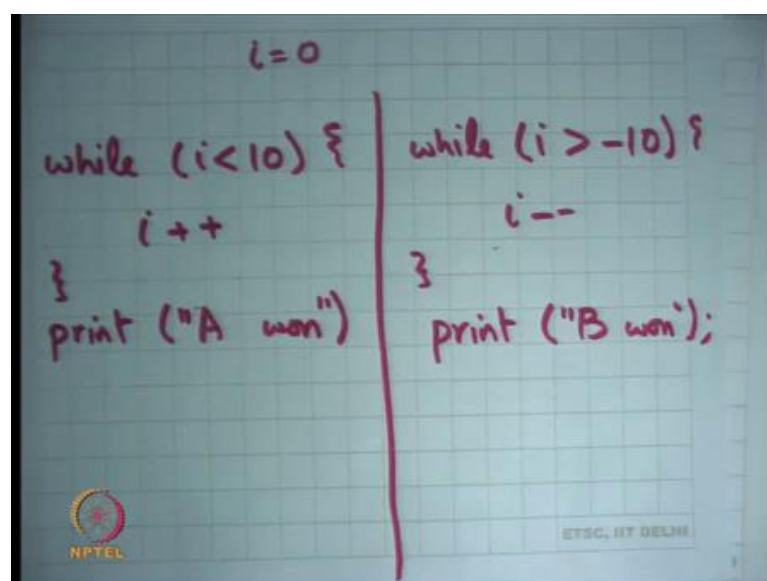 i = 0
while (i < 10) {
i ++
}
print ("A won")
while (i > -10) {
i --
}
print ("B won');
NPTEL
ETSC, IIT DELHI